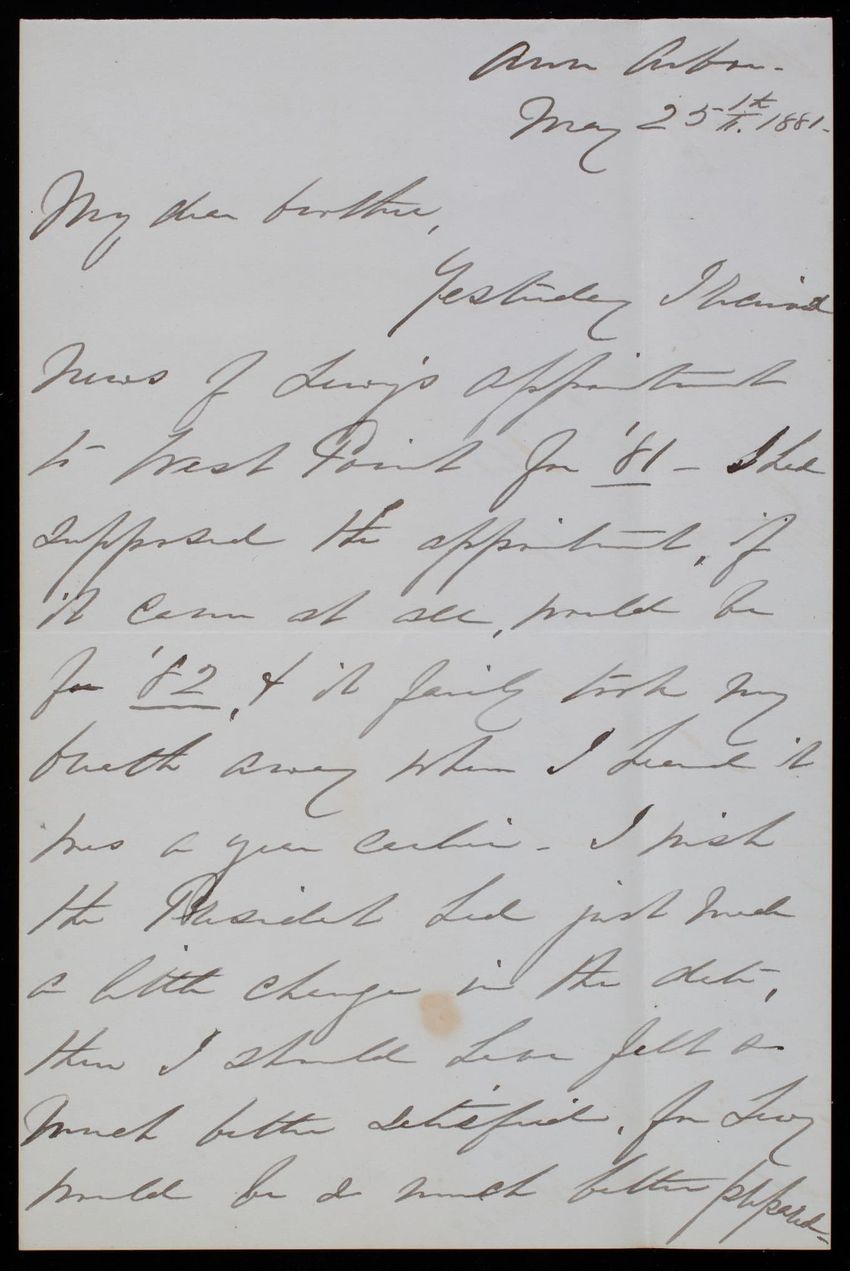 Ann Arbor -
May 25th. 1881 -
My dear brother,
Yesterday I received
news of Leroy's appointment
to West Point for '81 - I had
supposed the appointment, if
it came at all, would be
for '82, & it fairly took my
breath away when I heard it
was a year earlier - I wish
the President had just made
a little change in the date,
then I should have felt so
much better satisfied, for Leroy
would be so much better prepared -